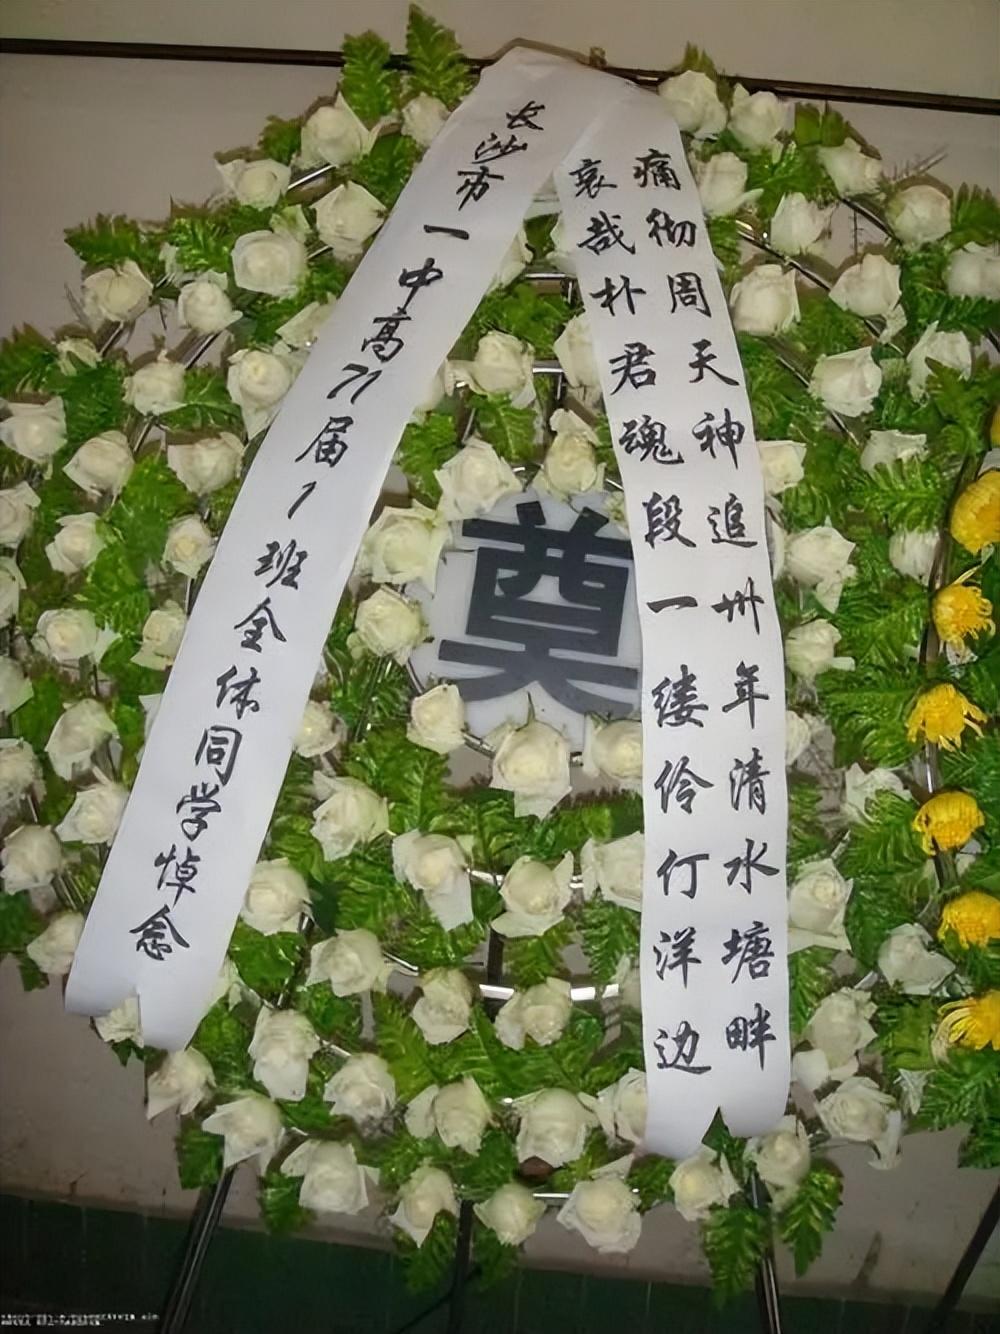 痛彻周天神追卅年清水塘畔
哀哉朴君魂段一缕伶仃洋边
奠
长沙市一中高71届1班全体同学悼念